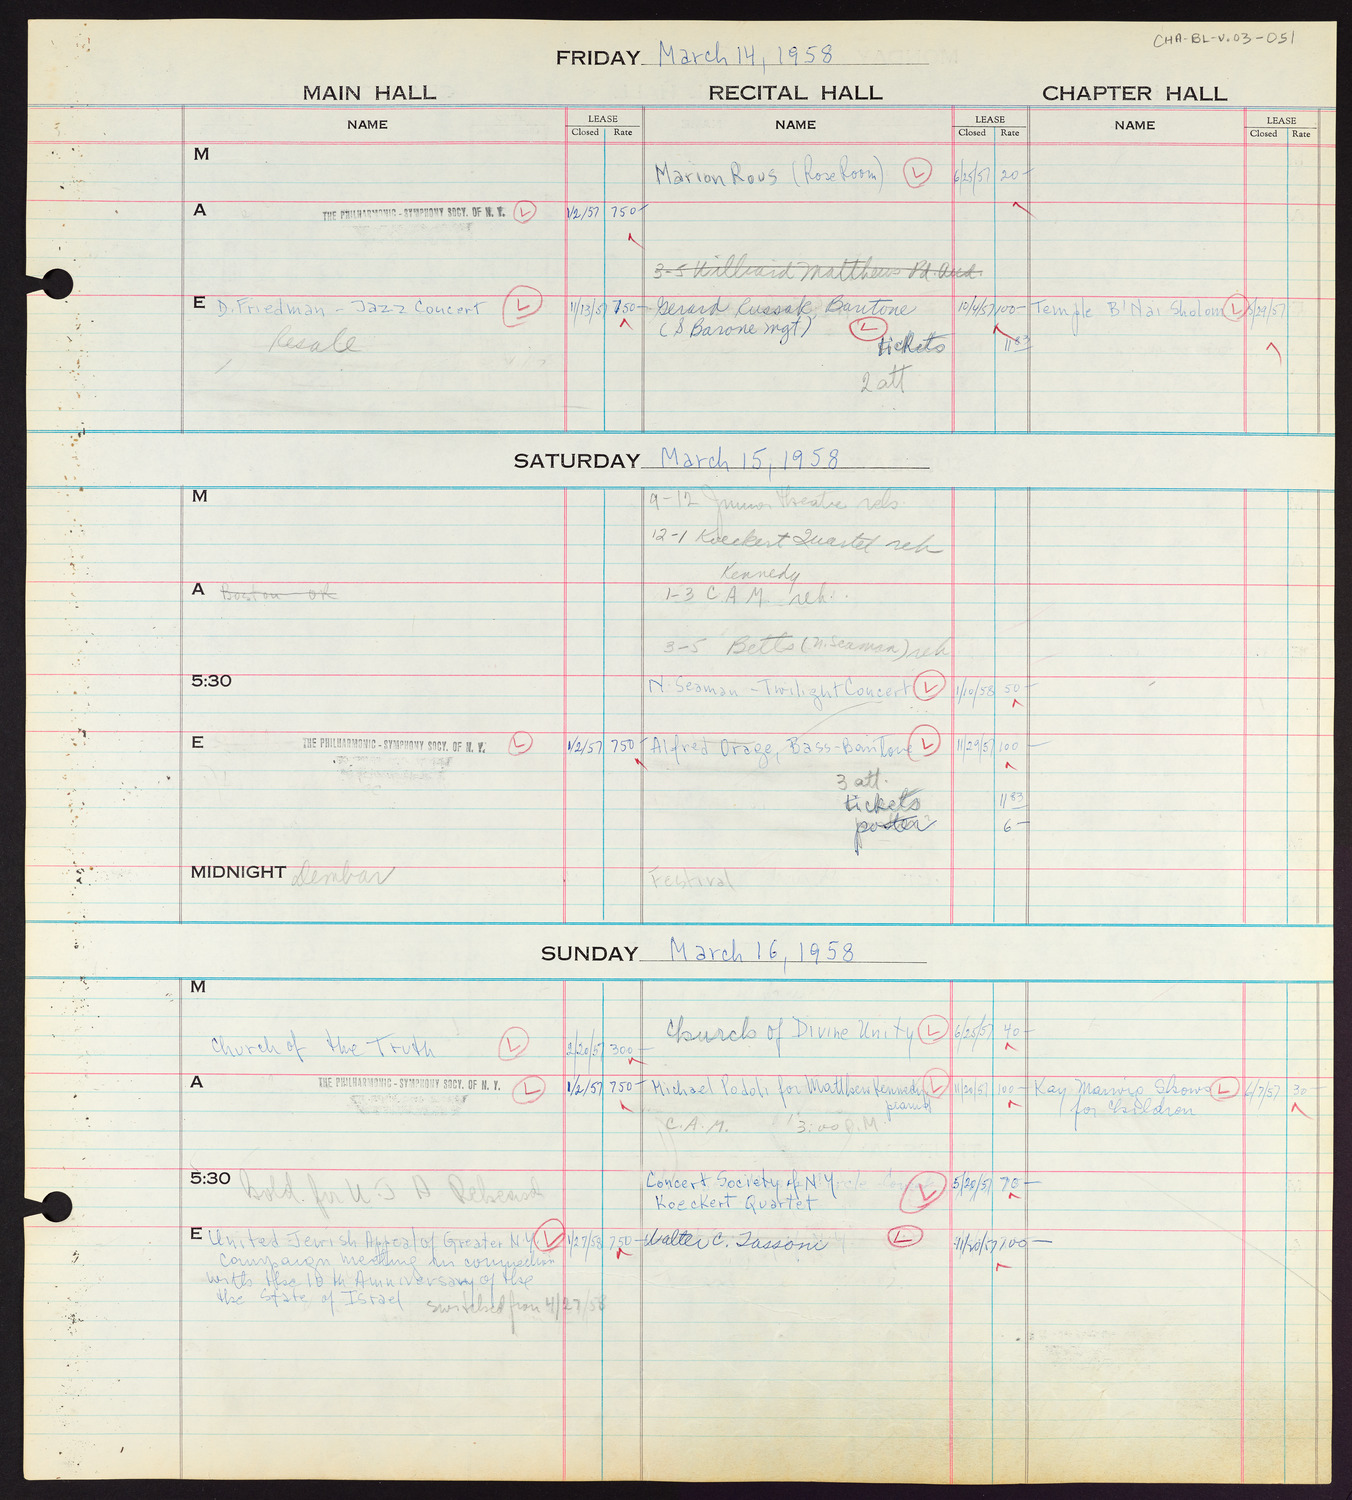 CHA-BL-V.03-051
FRIDAY March 14, 1958
MAIN HALL RECITAL HALL CHAPTER HALL
NAME LEASE Closed Rate NAME LEASE Closed Rate NAME LEASE Closed Rate
M
Marion Rous (Rose Room) L 6/25/57 20-
A THE PHILHARMONIC-SYMPHONY SOCY. OF N. Y. L 1/2/57 750-
3-5 Williard Matthews Pd. Aud.
E D. Friedman - Jazz Concert L 11/13/57 750- Gerard Russak, Baritone 10/4/57 100- Temple B'Nai Sholom L 5/29/57
(S Barone mgt) L
Resale tickets 11 83
2 att
SATURDAY March 15, 1958
M 9-12 Junior Theatre reh.
12-1 Koeckert Quartet reh
Kennedy
A Boston OK 1-3 C.A.M. reh.
3-5 Betts (N. Seaman) reh
5:30 N. Seaman - Twilight Concert L 1/10/58 50-
E THE PHILHARMONIC-SYMPHONY SOCY. OF N. Y. L 1/2/57 750- Alfred Orage, Bass-Baritone L 11/29/57 100-
3 att.
tickets 11 83
poster 6-
MIDNIGHT Dembar Festival
SUNDAY March 16, 1958
M
Church of Divine Unity L 6/25/57 40-
Church of the Truth L 2/20/57 300-
A THE PHILHARMONIC-SYMPHONY SOCY. OF N. Y. L 1/2/57 750- Michael Podoli for Matthew Kennedy L 11/20/57 100- Kay Manvig Shows L 6/7/57 30-
pianist for Children
C.A.M. 3:00 P.M.
5:30 Hold for U J A Rehearsal Concert Society of N Y L 5/20/57 70-
Koeckert Quartet
E United Jewish Appeal of Greater N.Y. L 1/27/58 750- Walter C. Tassoni L 11/20/57 100-
Campaign meeting in connection
with the 10th Anniversary of the
the State of Israel switched from 4/27/58